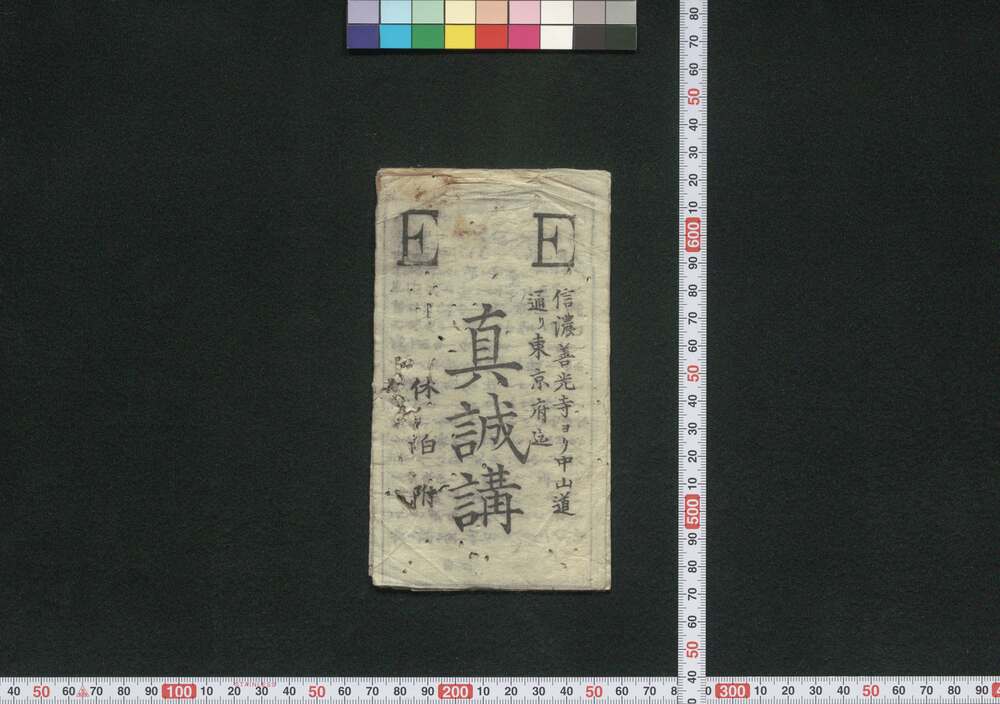 E E
信濃善光寺ヨリ中山道
通リ東京府迄
真誠講
休泊附
STAINLESS
80
70
60
50
40
30
20
10
600
90
80
70
60
50
40
30
20
10
500
90
80
70
60
50
40
40 50 60 70 80 90 100 10 20 30 40 50 60 70 80 90 200 10 20 30 40 50 60 70 8 0 300 10 20 30 40 50 60 70 80 90